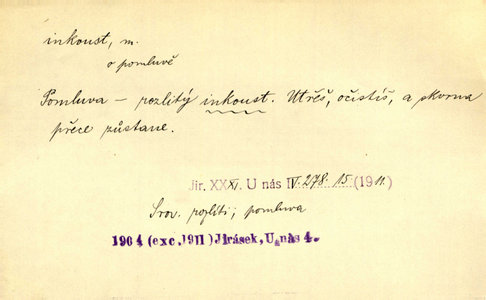 inkoust, m.
o pomluvě
Pomluva – rozlitý inkoust. Utřeš, očistíš, a skvrna
přece zůstane.
Jir. XXXI. U nás IV. 278. 15. (1911.)
Srov. rozlíti; pomluva
1904 (exc. 1911) Jirásek, U nás 4.